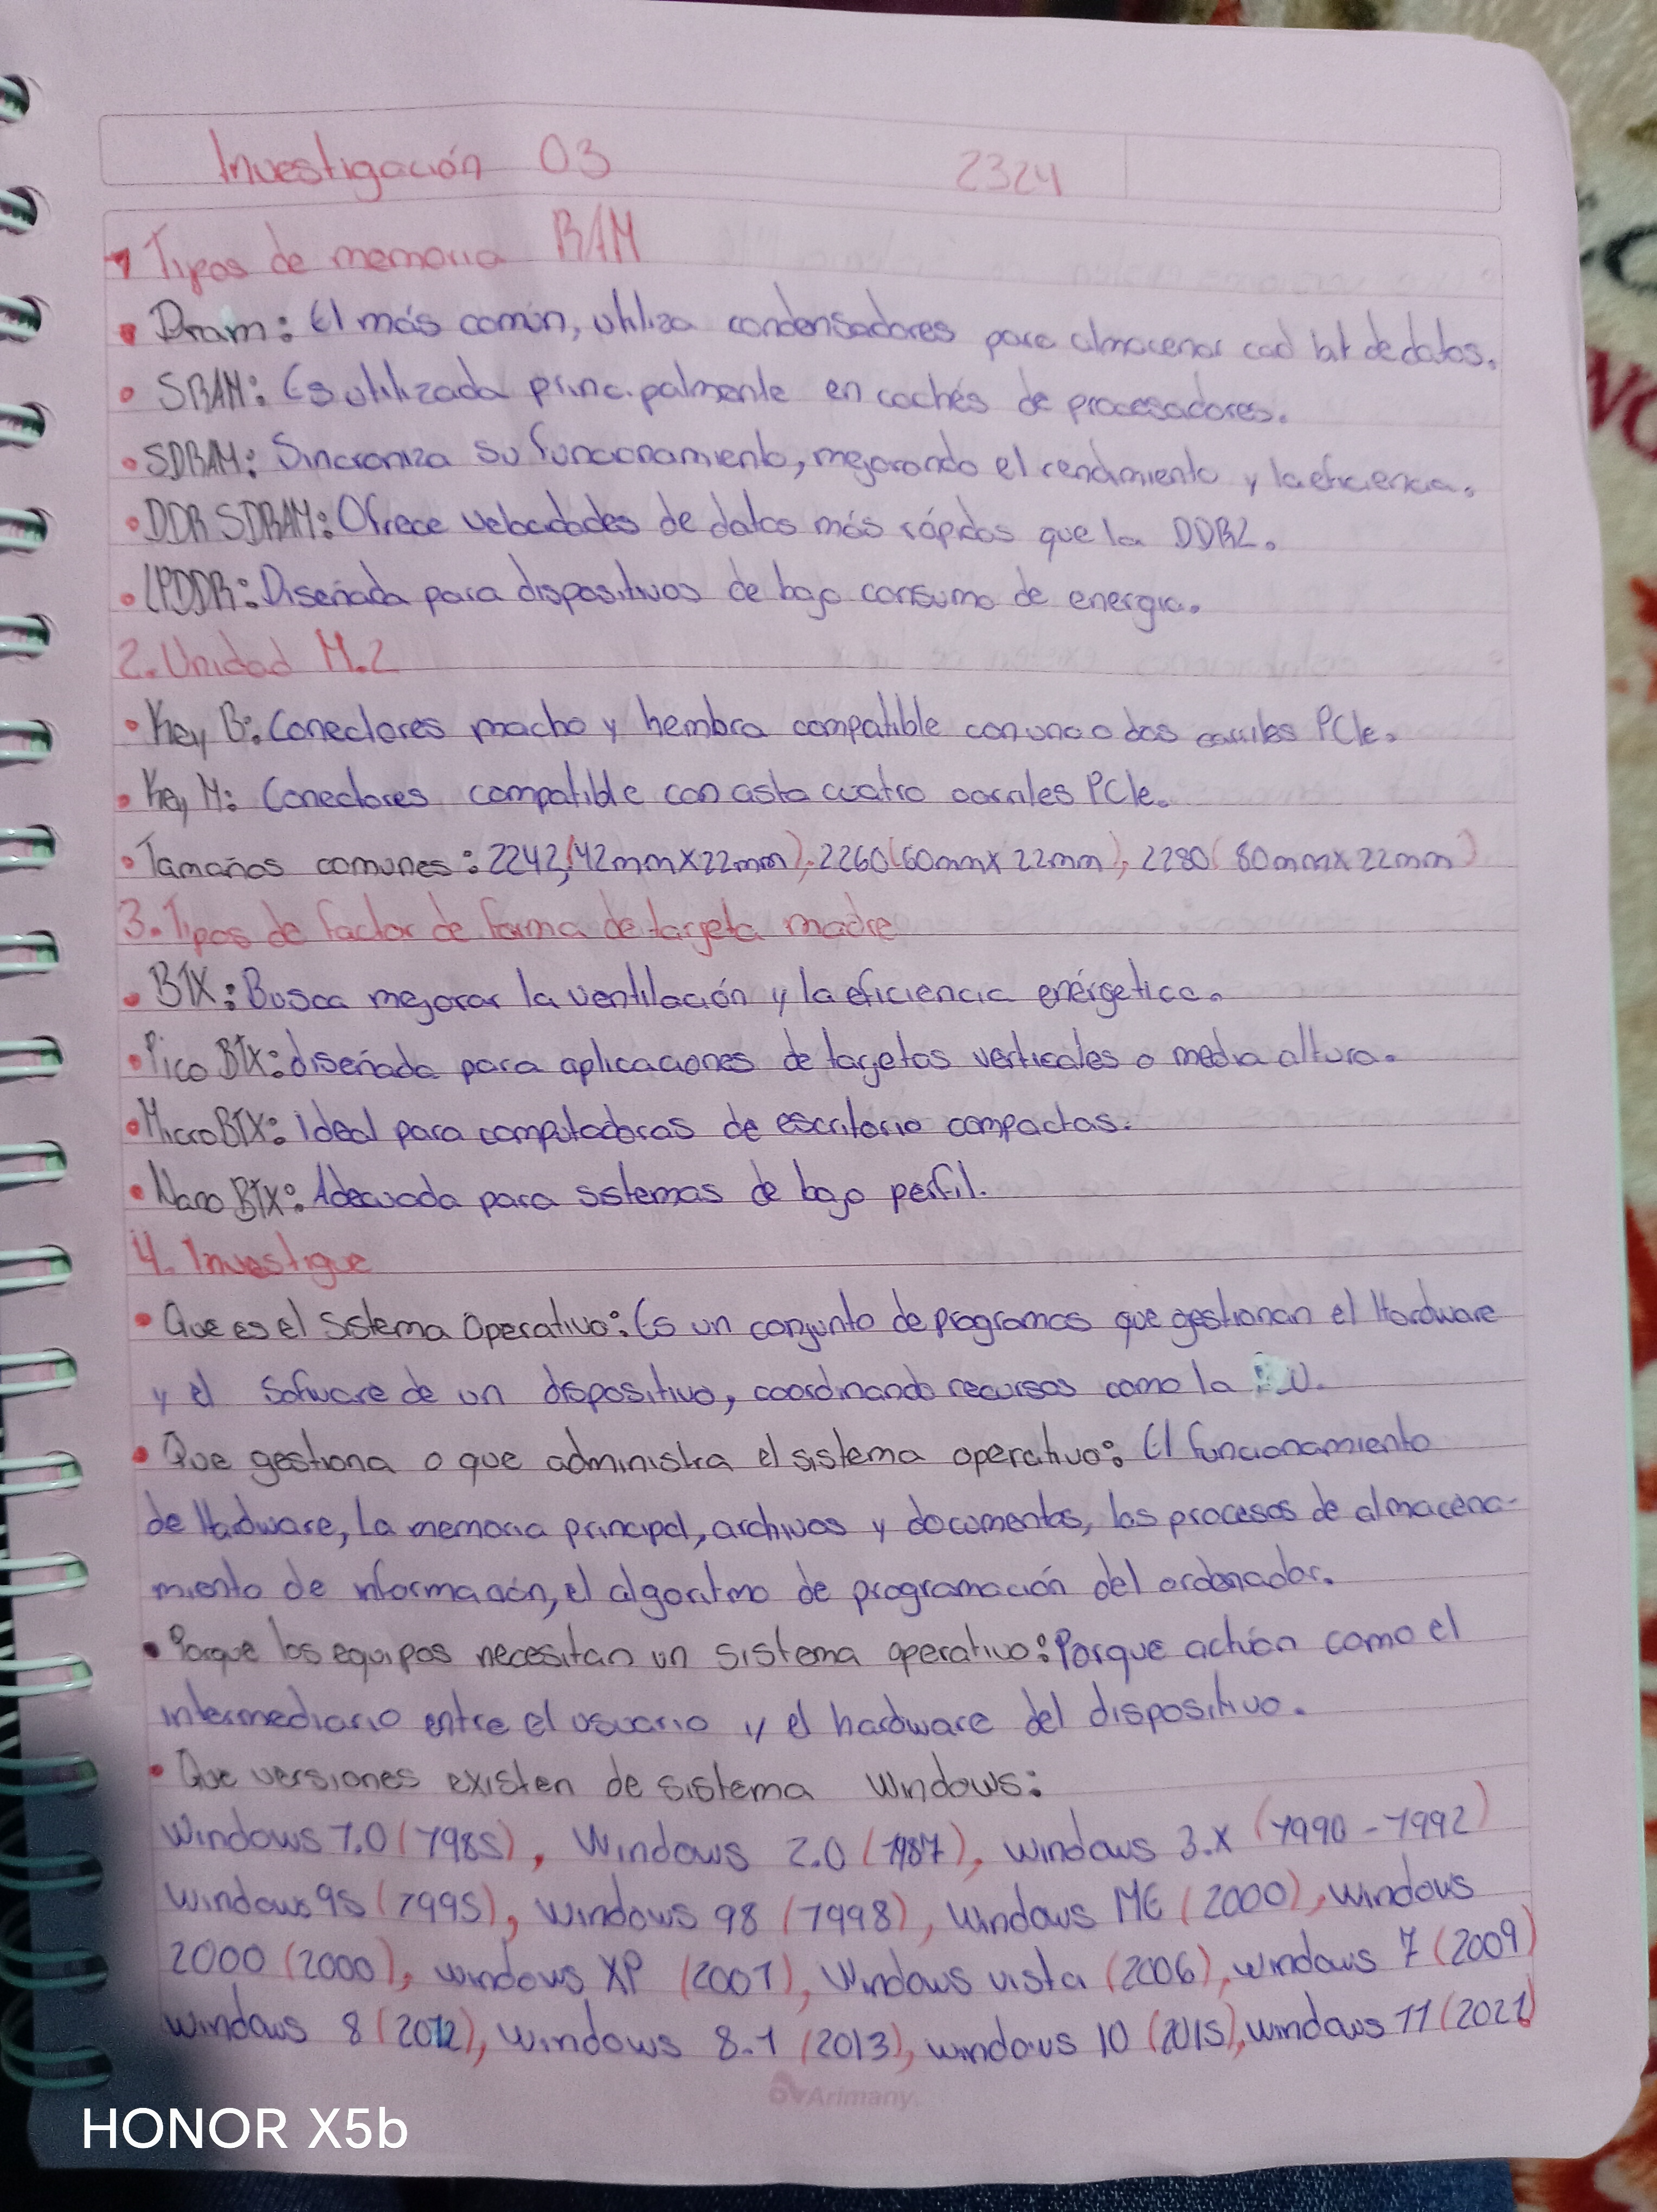 Investigación 03 2324
1 Tipos de memoria RAM
• Dram: El más común, utiliza condensadores para almacenar cad bit de datos.
• SRAM: Es utilizada principalmente en cachés de procesadores.
• SDRAM: Sincroniza su funcionamiento, mejorando el rendimiento y la eficiencia.
• DDR SDRAM: Ofrece velocidades de datos más rápidos que la DDR2.
• LPDDR: Diseñada para dispositivos de bajo consumo de energia.
2. Unidad M.2
• Key B: Conectores macho y hembra compatible con uno o dos carriles PCIe.
• Key M: Conectores compatible con asta cuatro carriles PCIe.
• Tamaños comunes: 2242,(42mm x 22mm), 2260(60mm x 22mm), 2280(80mm x 22mm)
3. Tipos de factor de forma de targeta madre
• BTX: Busca mejorar la ventilación y la eficiencia enérgetica.
• Pico BTX: diseñada para aplicaciones de targetas verticales o media altura.
• Micro BTX: Ideal para computadoras de escritorio compactas.
• Nano BTX: Adecuada para sistemas de bajo perfil.
4. Investigue
• Que es el sistema Operativo: Es un conjunto de programas que gestionan el Hardware
y el software de un dispositivo, coordinando recursos como la
• Que gestiona o que administra el sistema operativo: El funcionamiento
de Hadware, La memoria principal, archivos y documentos, los procesos de almacena-
miento de información, el algoritmo de programación del ordenador.
• Porque los equipos necesitan un sistema operativo: Porque actúan como el
intermediario entre el usuario y el hardware del dispositivo.
• Que versiones existen de sistema Windows:
Windows 1.0 (1985), Windows 2.0 (1987), windows 3.x (1990 - 1992)
Windows 95 (1995), windows 98 (1998), Windows ME (2000), windows
2000 (2000), windows XP (2001), Windows vista (2006), windows 7 (2009)
windows 8 (2012), windows 8.1 (2013), windows 10 (2015), windows 11 (2021)
Arimany.
HONOR X5b